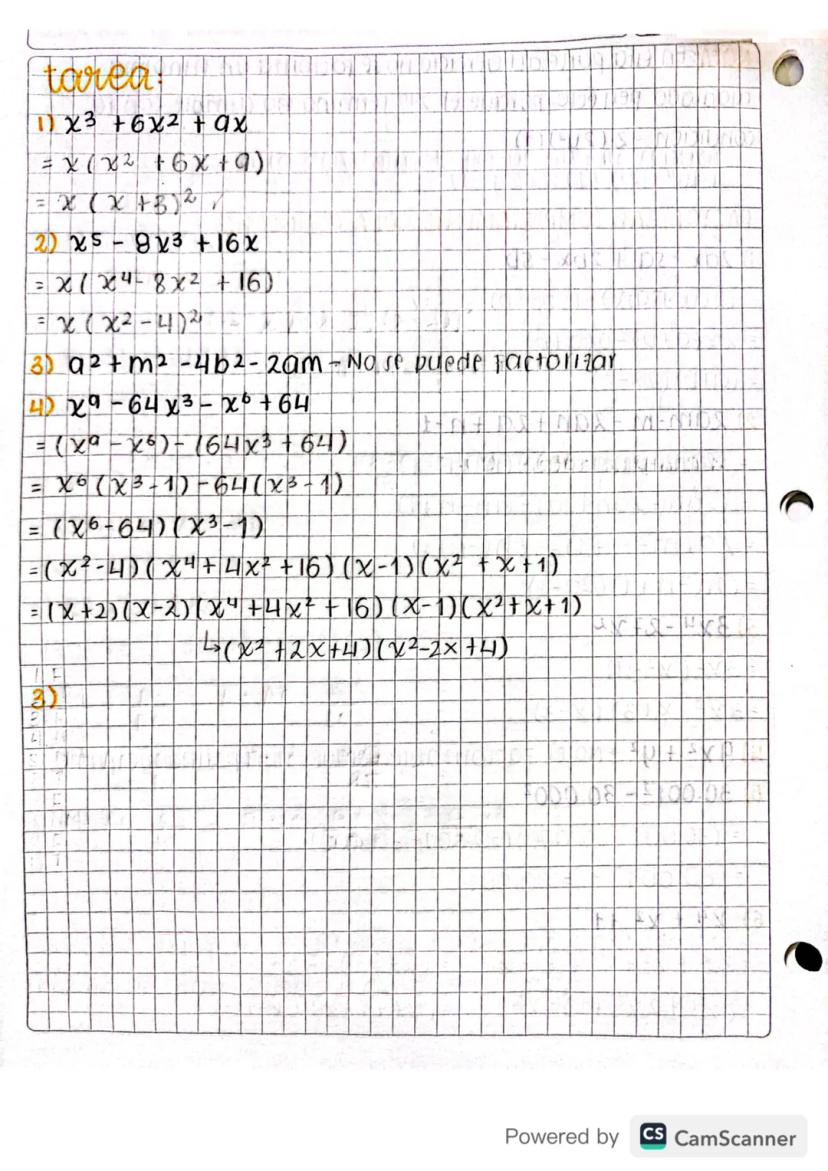 tarea:
1) x³ + 6x² + 9x
= x(x² + 6x + 9)
= x(x + 3)²
2) x⁵ - 8x³ + 16x
= x(x⁴ - 8x² + 16)
= x(x² - 4)²
3) a² + m² - 4b² - 2am - No se puede factorizar
4) x⁹ - 64x³ - x⁶ + 64
= (x⁹ - x⁶) - (64x³ + 64)
= x⁶(x³ - 1) - 64(x³ - 1)
= (x⁶ - 64)(x³ - 1)
= (x² - 4)(x⁴ + 4x² + 16)(x - 1)(x² + x + 1)
= (x + 2)(x - 2)(x⁴ + 4x² + 16)(x - 1)(x² + x + 1)
↳(x² + 2x + 4)(x² - 2x + 4)
3)
Powered by CS CamScanner